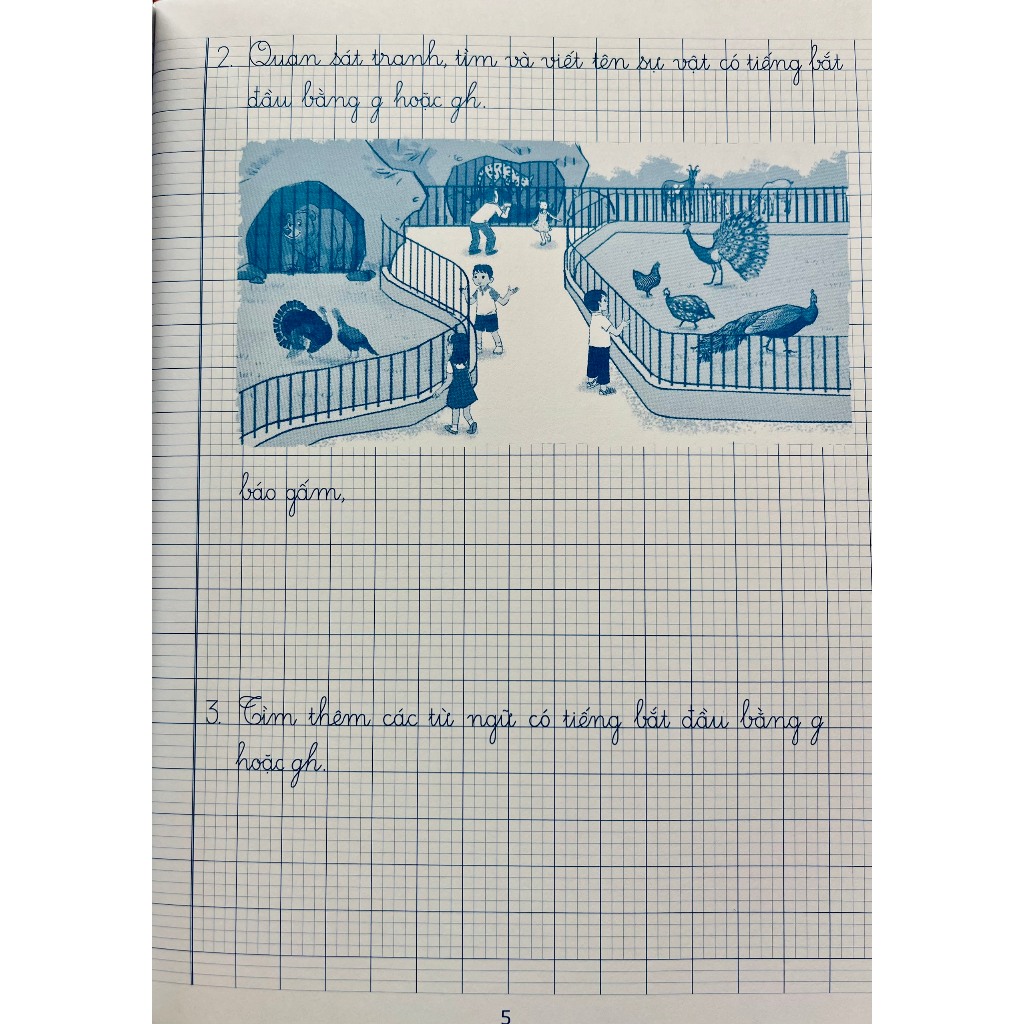 2. Quan sát tranh, tìm và viết tên sự vật có tiếng bắt
đầu bằng g hoặc gh.
báo gấm,
3. Tìm thêm các từ ngữ có tiếng bắt đầu bằng g
hoặc gh.
5